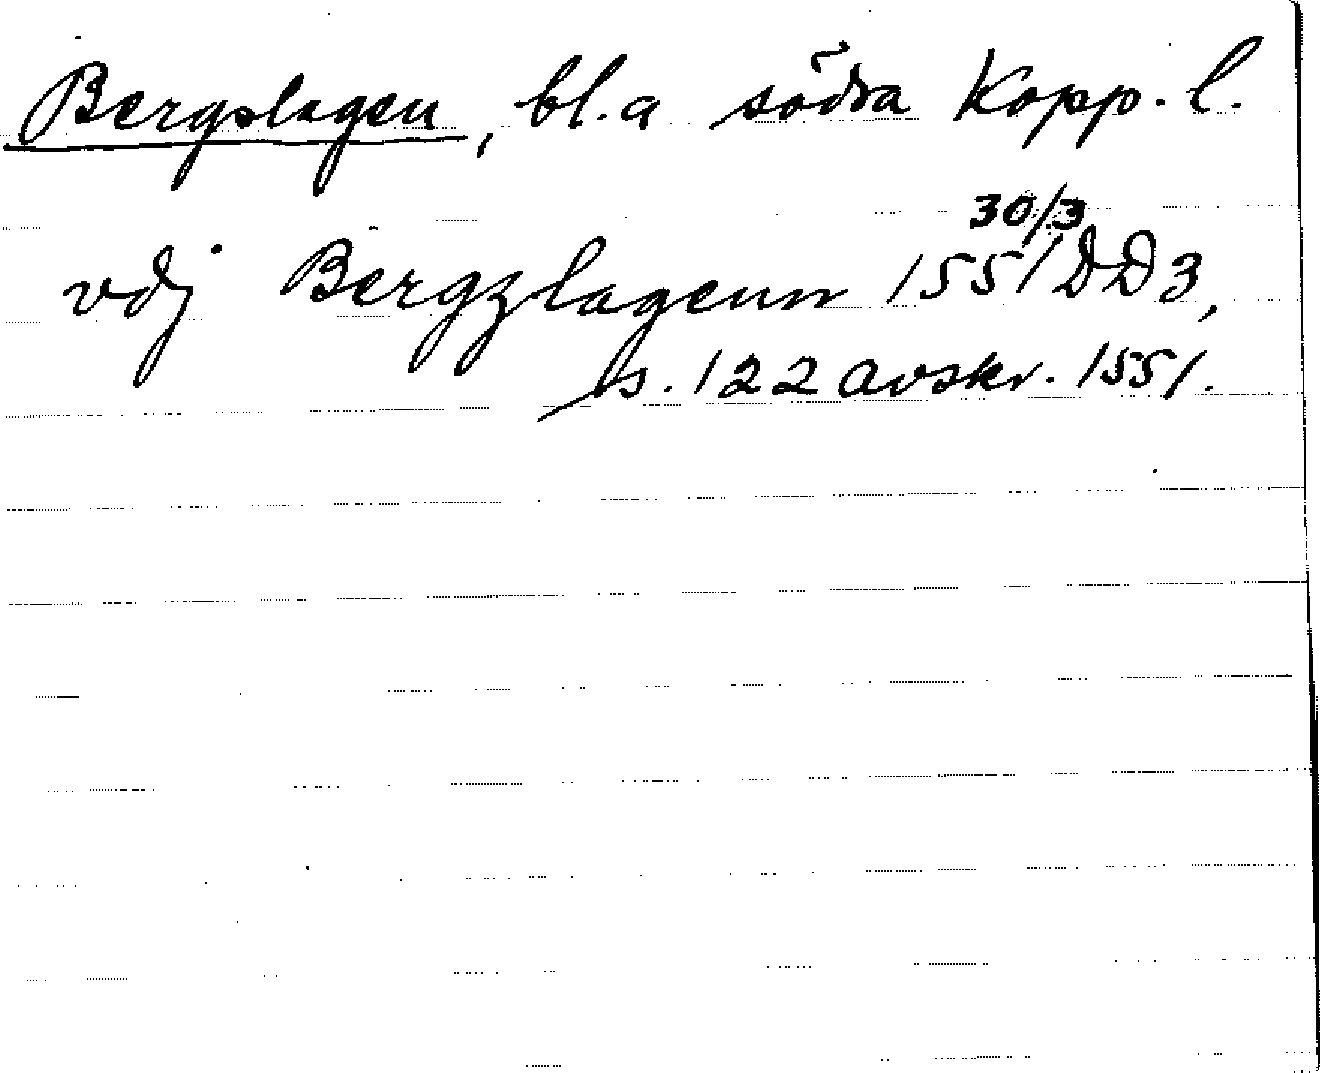 Bergslagen, bl.a södra Kopp. l.
30/3
vdj Bergzlagenn 1551 DD3,
s. 122 avskr. 1551.